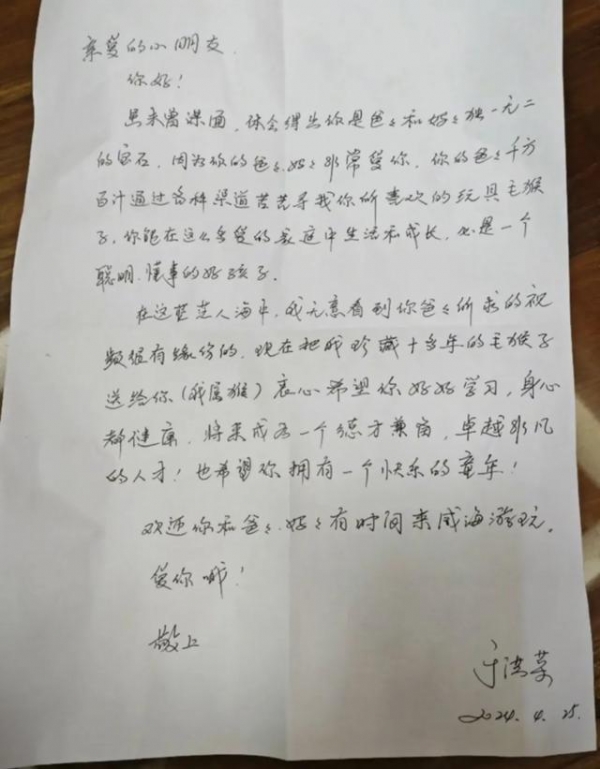 亲爱的小朋友.
你好！
虽未曾谋面，体会得出你是爸々和妈々独一无二
的宝石，因为你的爸々、妈々非常爱你，你的爸々千方
百计通过各种渠道苦苦寻找你所喜欢的玩具毛猴
子，你能在这么多爱的家庭中生活和成长，必是一个
聪明、懂事的好孩子。
在这茫茫人海中，我无意看到你爸々所求的视
频很有缘份的，现在把我珍藏十多年的毛猴子
送给你（我属猴）衷心希望你好好学习，身心
都健康，将来成为一个德才兼备，卓越非凡
的人才！也希望你拥有一个快乐的童年！
欢迎你和爸々、妈々有时间来威海游玩。
爱你哟！
敬上
2024.4.25.